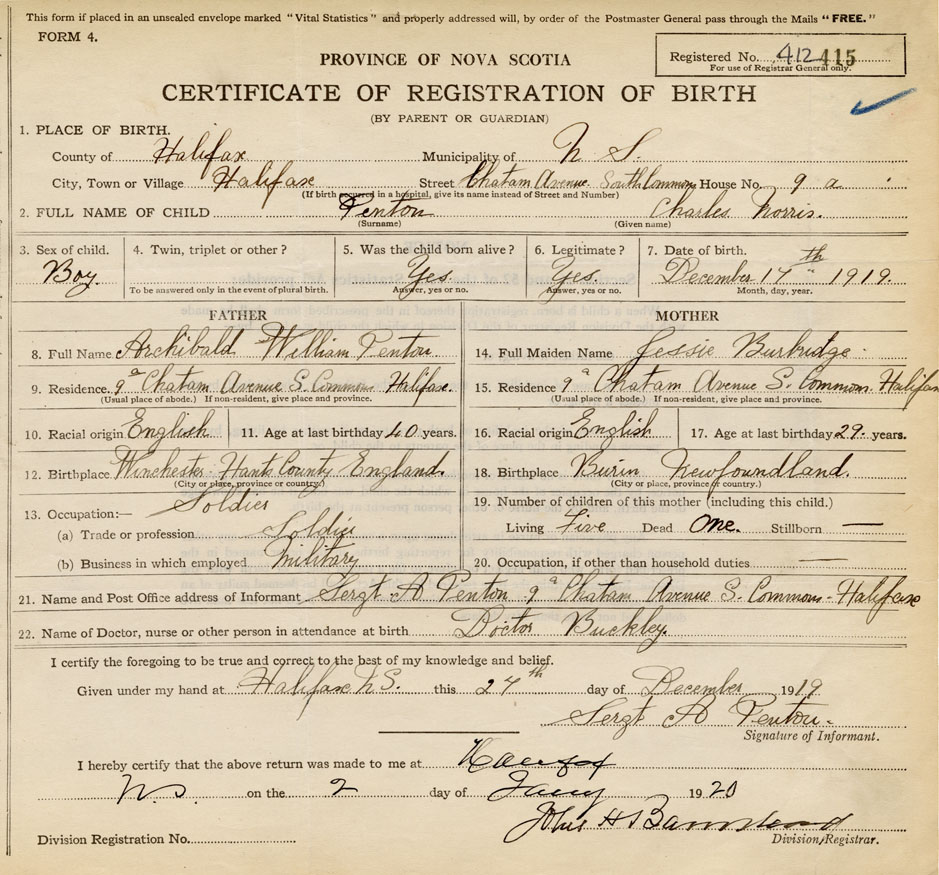 This form if placed in an unsealed envelope marked "Vital Statistics" and properly addressed will, by order of the Postmaster General pass through the Mails "FREE."
FORM 4.
PROVINCE OF NOVA SCOTIA
Registered No. 412 415
For use of Registrar General only.
CERTIFICATE OF REGISTRATION OF BIRTH
(BY PARENT OR GUARDIAN)
1. PLACE OF BIRTH.
County of Halifax Municipality of N S.
City, Town or Village Halifax Street Chatam Avenue. South Common House No. 9 a
(If birth occurred in a hospital, give its name instead of Street and Number)
2. FULL NAME OF CHILD Penton Charles Norris.
(Surname) (Given name)
3. Sex of child. 4. Twin, triplet or other? 5. Was the child born alive? 6. Legitimate? 7. Date of birth.
Boy. Yes. Yes. December 17th 1919.
To be answered only in the event of plural birth. Answer, yes or no. Answer, yes or no. Month, day, year.
FATHER MOTHER
8. Full Name Archibald William Penton 14. Full Maiden Name Jessie Burridge
9. Residence. 9a Chatam Avenue S. Commons Halifax. 15. Residence 9a Chatam Avenue S. Commons. Halifax
(Usual place of abode.) If non-resident, give place and province. (Usual place of abode.) If non-resident, give place and province.
10. Racial origin English 11. Age at last birthday 40 years. 16. Racial origin English 17. Age at last birthday 29. years.
12. Birthplace Winchester Hants County England. 18. Birthplace Burin Newfoundland.
(City or place, province or country.) (City or place, province or country.)
13. Occupation:— Soldier 19. Number of children of this mother (including this child.)
(a) Trade or profession Soldier Living Five Dead One. Stillborn —
(b) Business in which employed Military 20. Occupation, if other than household duties —
21. Name and Post Office address of Informant Sergt A Penton 9a Chatam Avenue S. Commons - Halifax
22. Name of Doctor, nurse or other person in attendance at birth Doctor Buckley.
I certify the foregoing to be true and correct to the best of my knowledge and belief.
Given under my hand at Halifax N.S. this 27th day of December 1919
Sergt A Penton.
Signature of Informant.
I hereby certify that the above return was made to me at Halifax
N.S. on the 2 day of Jany 1920
John H Barnstead
Division Registrar.
Division Registration No.